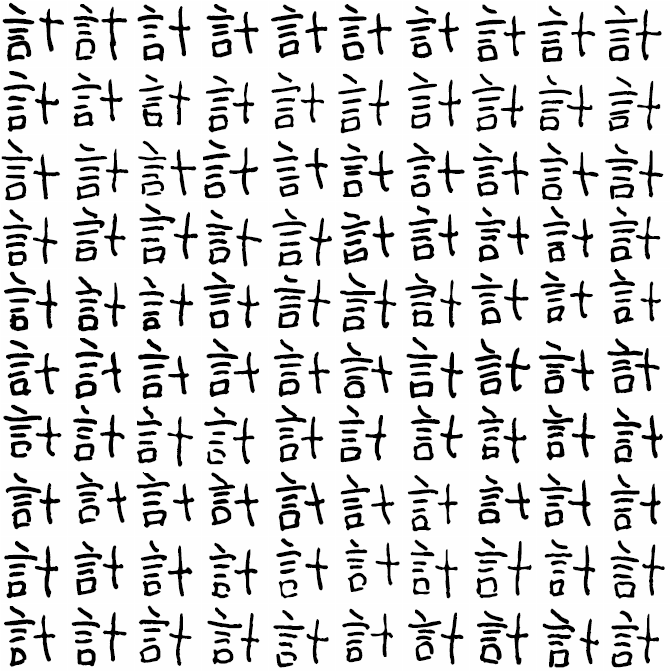 計計計計計計計計計計
計計計計計計計計計計
計計計計計計計計計計
計計計計計計計計計計
計計計計計計計計計計
計計計計計計計計計計
計計計計計計計計計計
計計計計計計計計計計
計計計計計計計計計計
計計計計計計計計計計